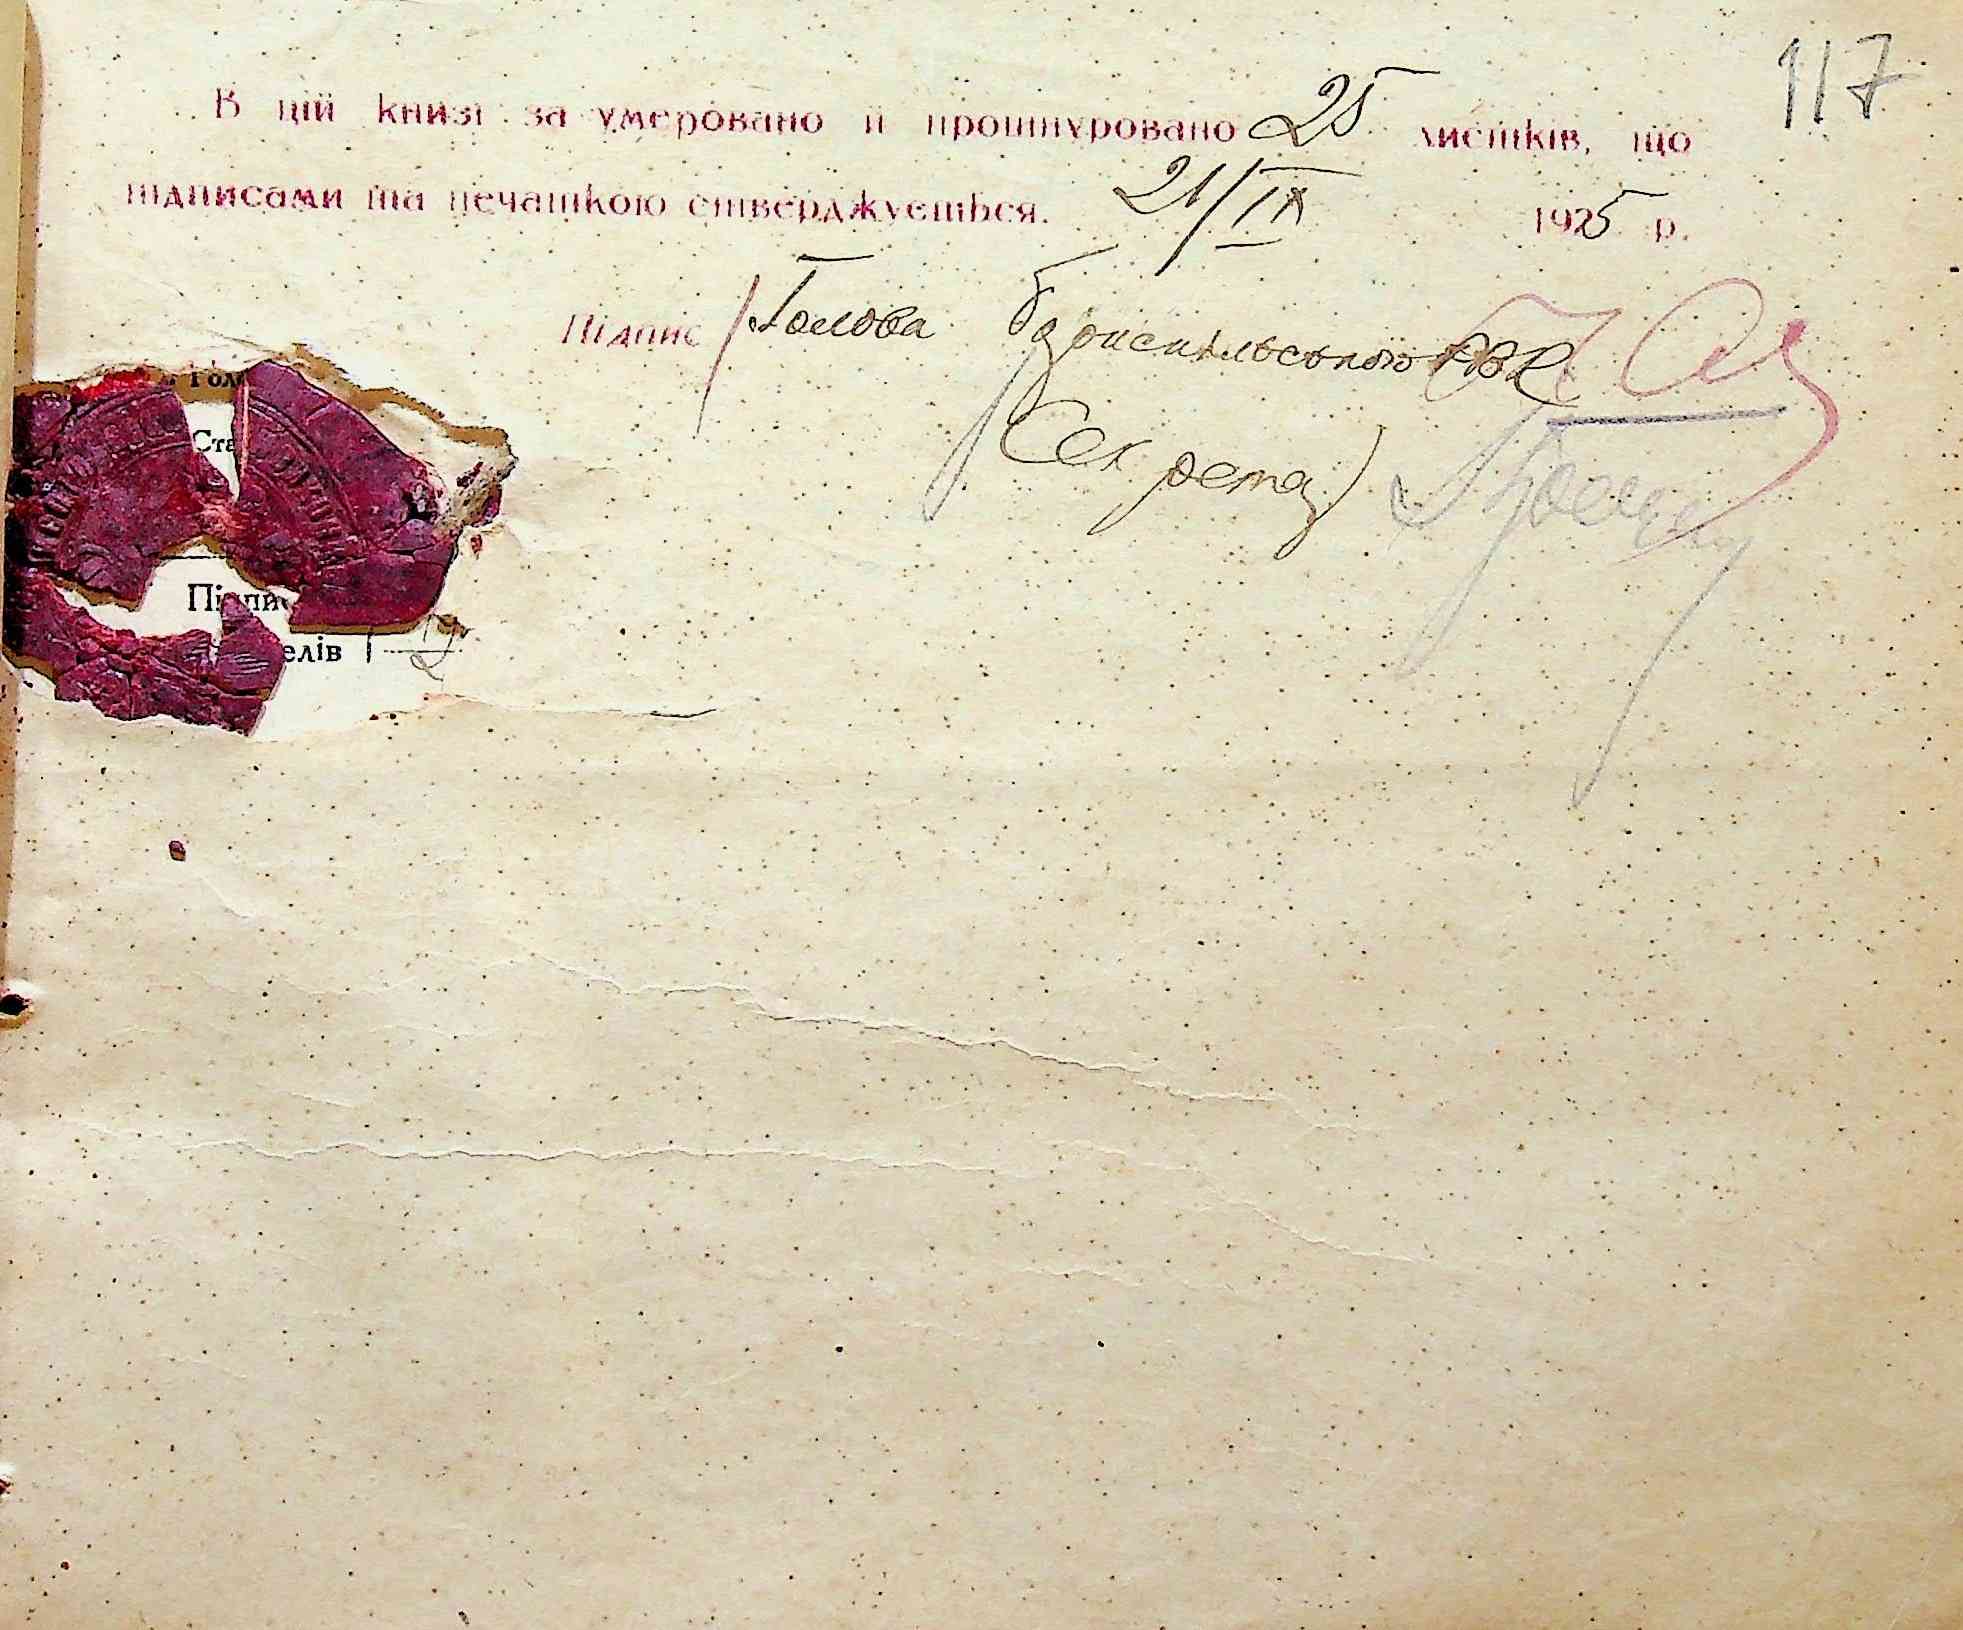 117
В цій книзі занумеровано и прошнуровано 25 листків, що
підписами та печаткою стверджується. 21/IX 1925 р.
Підпис Голова РВК
Секретар
Голо
Ста
Підпис
елів